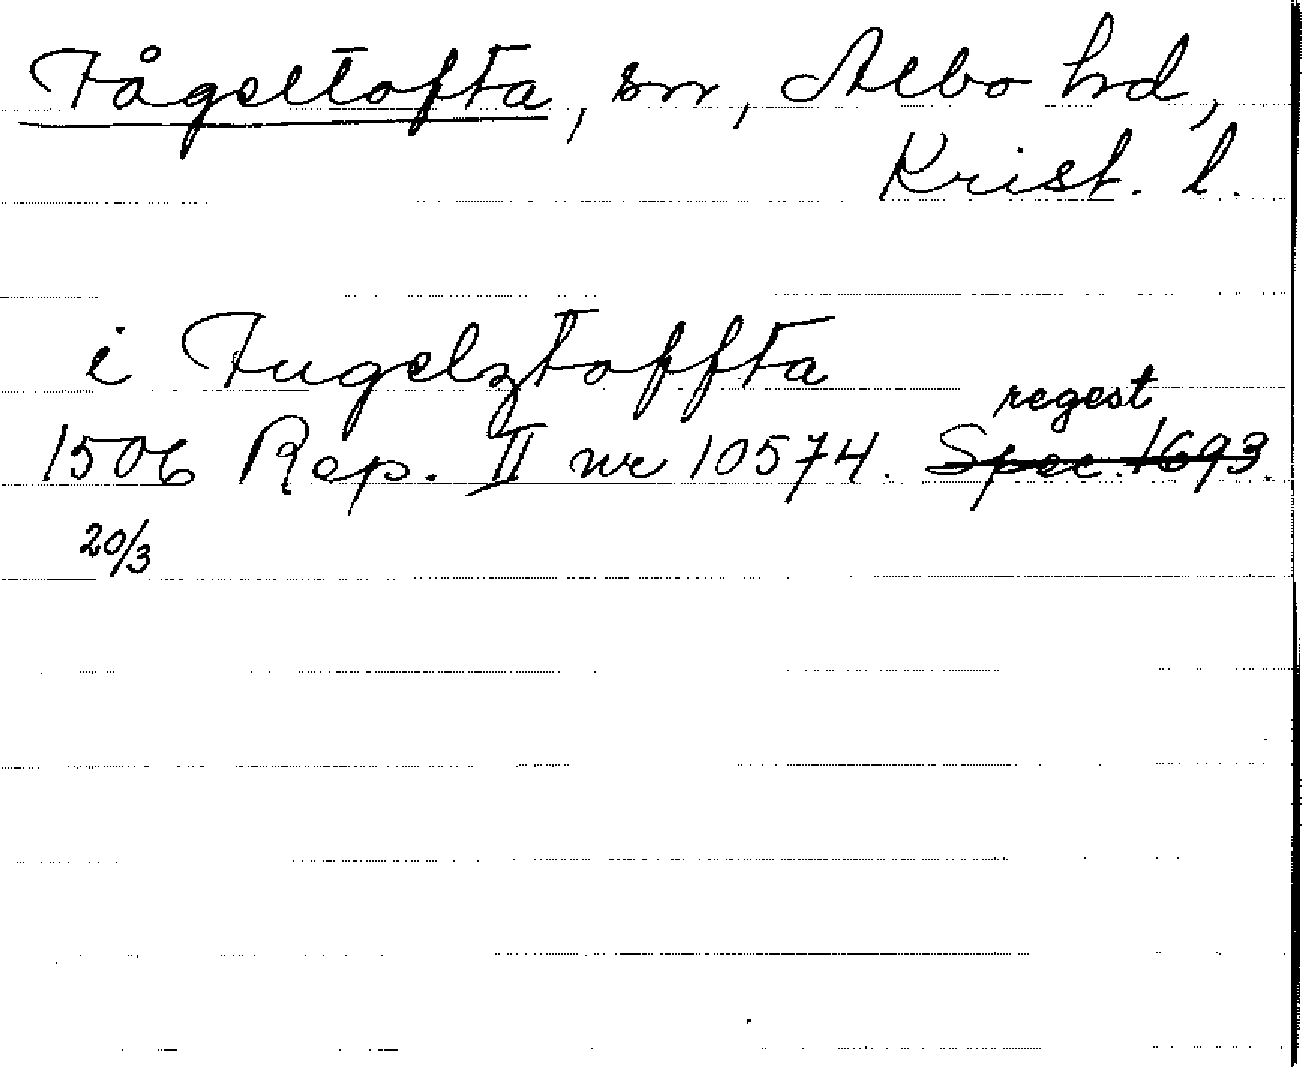 Fågeltofta, sn, Albo hd,
Krist. l.
i Fugelztoffta
regest
1506 Rep. II nr 10574. Spec. 1693.
20/3